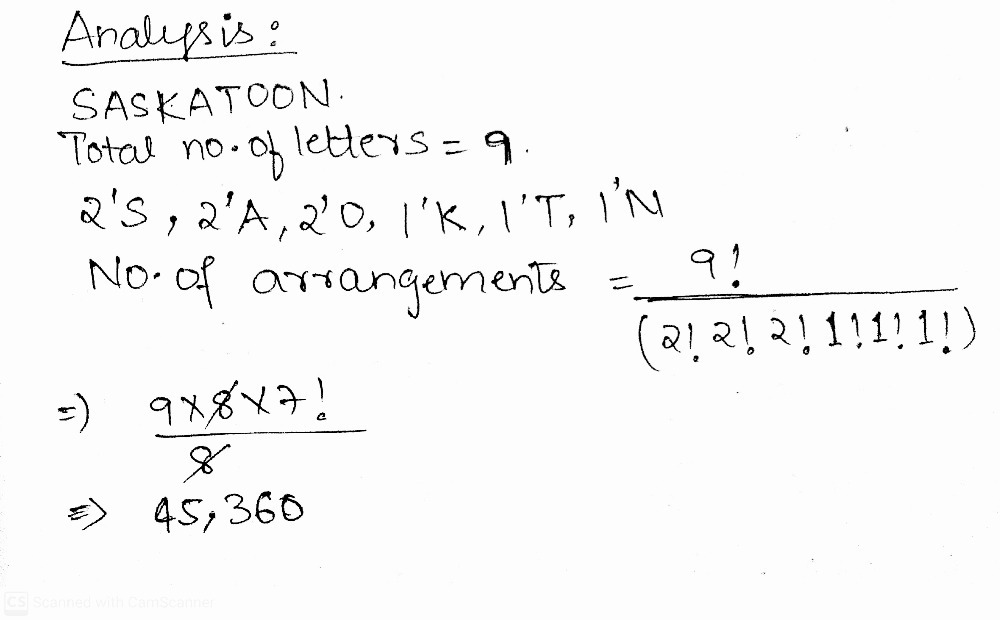 Analysis:
SASKATOON.
Total no. of letters = 9.
2'S, 2'A, 2'O, 1'K, 1'T, 1'N
No. of arrangements = 9! / (2! 2! 2! 1! 1! 1!)
=) 9 x 8 x 7! / 8
=> 45,360
CS Scanned with CamScanner